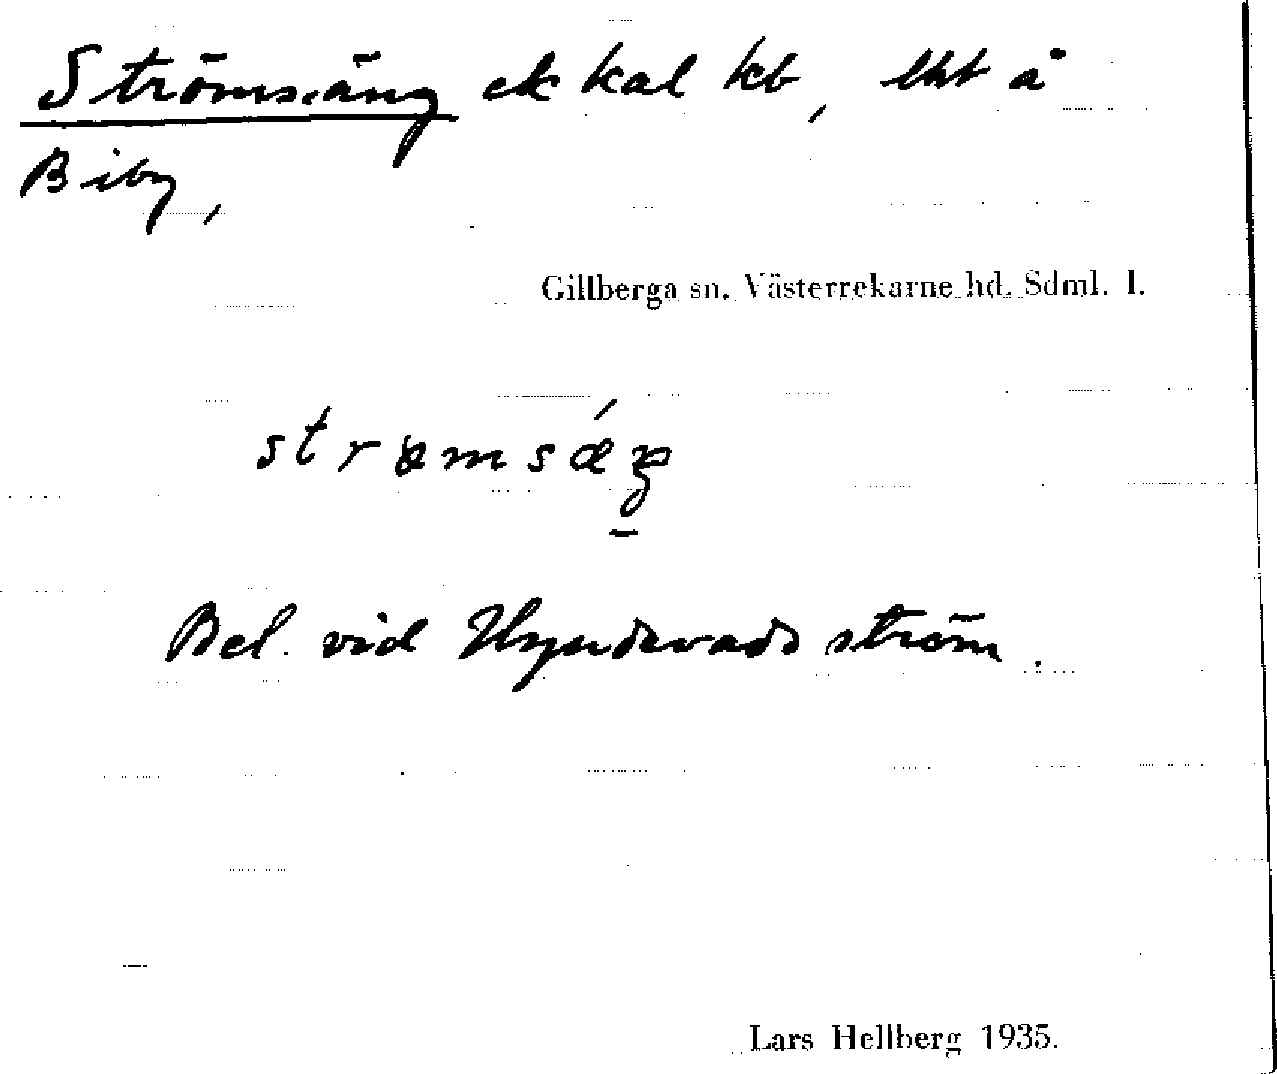 Strömsäng ek kal kb, lht å
Biby,
Gillberga sn. Västerrekarne hd. Sdml. l.
Bel. vid Hyndevads ström.
Lars Hellberg 1935.